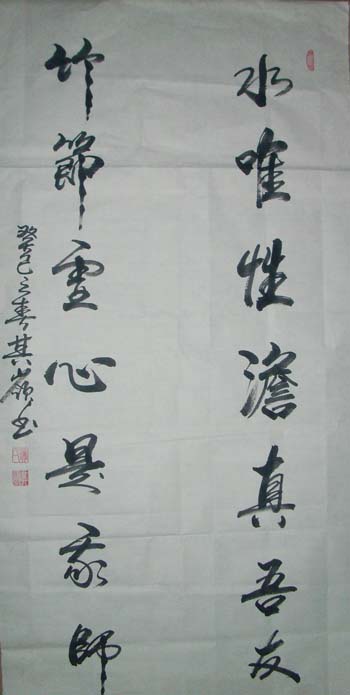 水唯性澹真吾友
竹節虚心是我師
癸巳之春其嶺书